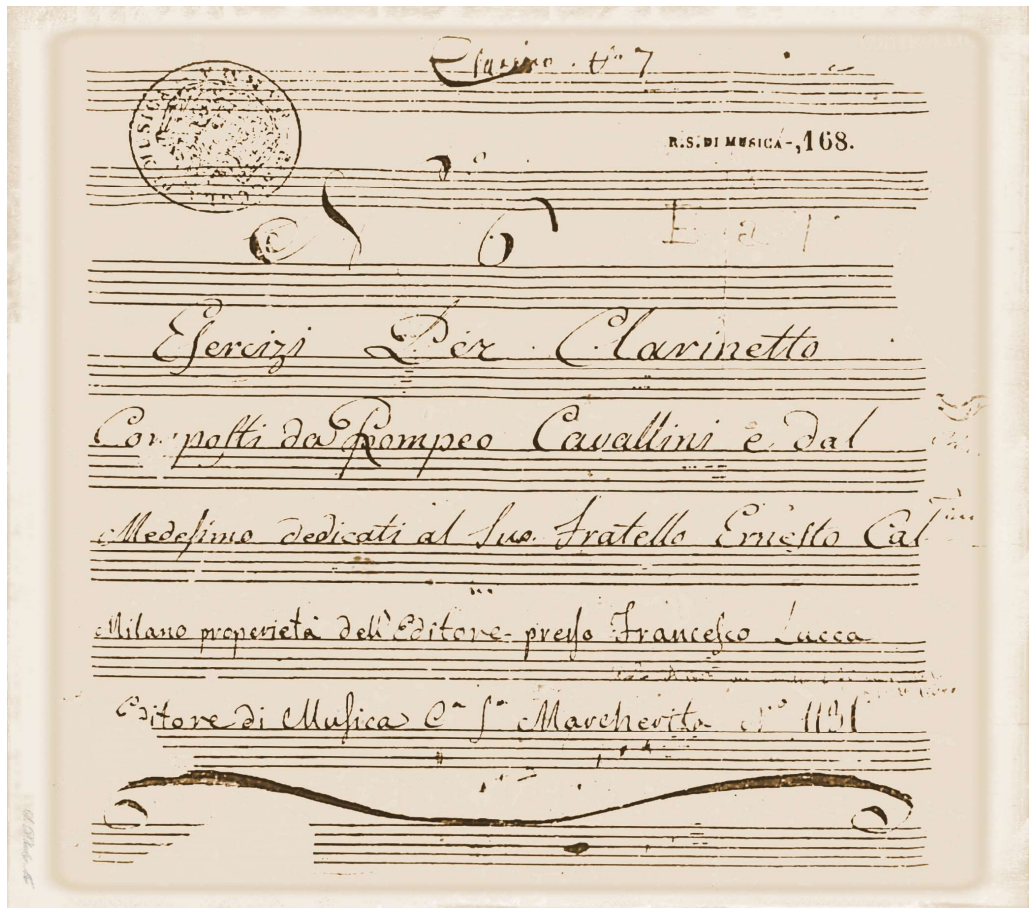 Clarino. t.º 7
MUSICA
R.S. DI MUSICA-,168.
N 6
Esercizi Per Clarinetto
Composti da Pompeo Cavallini e dal
Medesimo dedicati al Suo Fratello Ernesto Cal
Milano properietà dell'Editore presso Francesco Lucca
Editore di Musica C.ª S.ª Marcherita Nº 1131